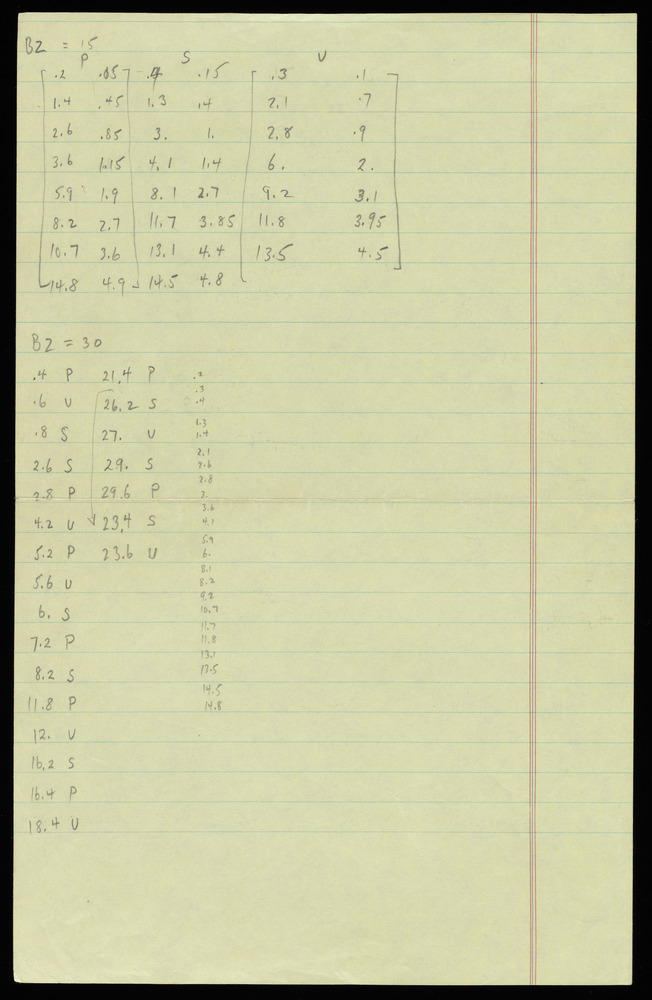 BZ = 15
P S U
.2 .05 .4 .15 .3 .1
1.4 .45 1.3 .4 2.1 .7
2.6 .85 3. 1. 2.8 .9
3.6 1.15 4.1 1.4 6. 2.
5.9 1.9 8.1 2.7 9.2 3.1
8.2 2.7 11.7 3.85 11.8 3.95
10.7 3.6 13.1 4.4 13.5 4.5
14.8 4.9 14.5 4.8
BZ = 30
.4 P 21.4 P .2
.3
.6 U 26.2 S .4
1.3
.8 S 27. U 1.4
2.1
2.6 S 29. S 2.6
2.8
2.8 P 29.6 P 3.
3.6
4.2 U 23.4 S 4.1
5.9
5.2 P 23.6 U 6.
8.1
5.6 U 8.2
9.2
6. S 10.7
11.7
7.2 P 11.8
13.1
8.2 S 13.5
14.5
11.8 P 14.8
12. U
16.2 S
16.4 P
18.4 U